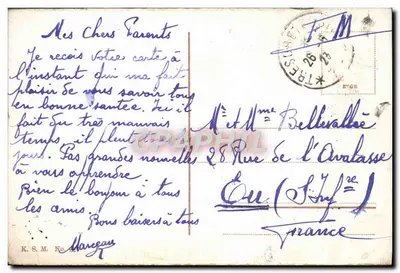 Mes Chers Parents
Je recois votre carte à
l'instant qui ma fait
plaisir de vous savoir tous
en bonne santée. Ici il
fait du tres mauvais
temps, il pleut
jours. Pas grandes nouvelles
à vous apprendre
Bien le bonjour à tous
les amis.
Bons baisers à tous
K. S. M. No
F M
TRES
26
23
Mr et Mme Bellevallée
28 Rue de l'Avalasse
Eu (S. Infre)
France